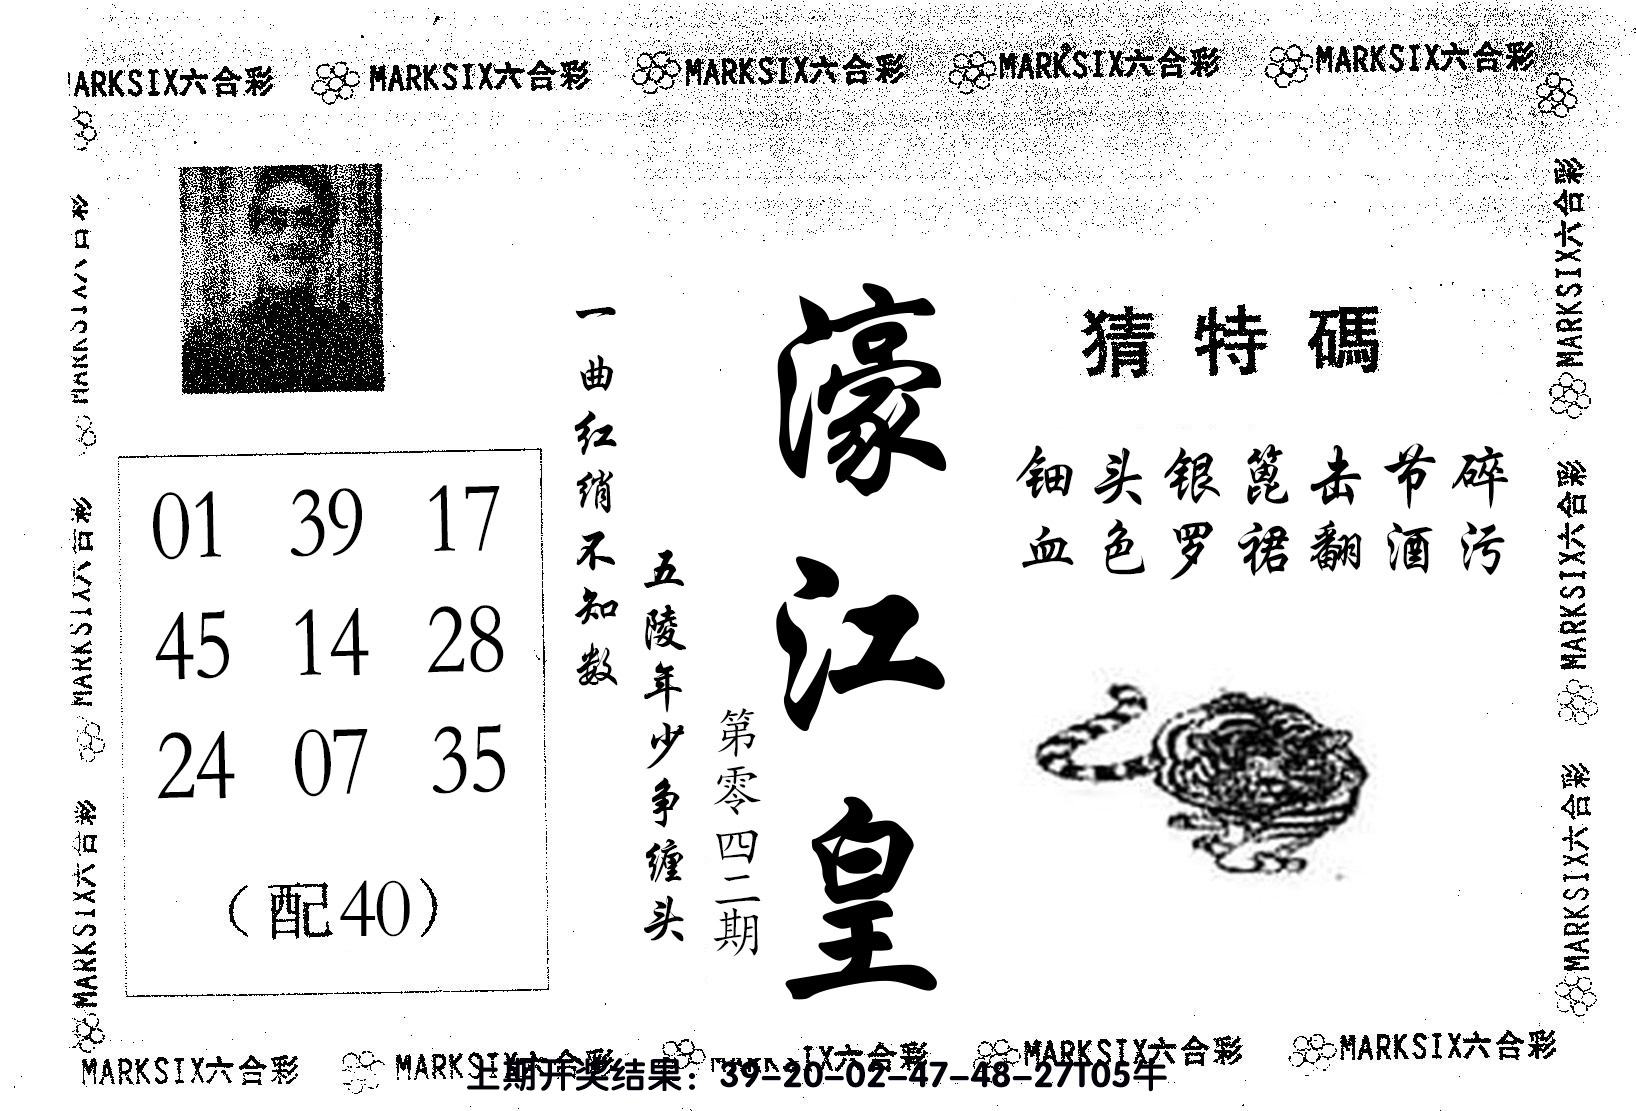 MARKSIX六合彩 MARKSIX六合彩 MARKSIX六合彩 MARKSIX六合彩 MARKSIX六合彩
MARKSIX六合彩
MARKSIX六合彩
MARKSIX六合彩
01 39 17
45 14 28
24 07 35
（配40）
一曲红绡不知数
五陵年少争缠头
第零四二期
濠江皇
猜特碼
钿头银篦击节碎
血色罗裙翻酒污
MARKSIX六合彩
MARKSIX六合彩
MARKSIX六合彩
MARKSIX六合彩 MARKSIX六合彩 IX六合彩 MARKSIX六合彩 MARKSIX六合彩
上期开奖结果：39-20-02-47-48-27T05牛